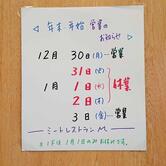 年末年始営業の
お知らせ
12月 30日(月)…営業
31日(火)
1月 1日(水) 休業
2日(木)
3日(金)…営業
ミントレストランM
※1Fは1月1日のみお休みです。